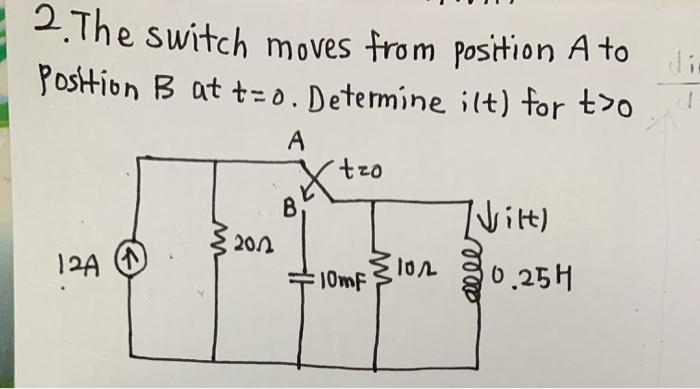 2. The switch moves from position A to
Position B at t=0. Determine i(t) for t>0
A
t=0
B
i(t)
12A
20Ω
10mF
10Ω
0.25H